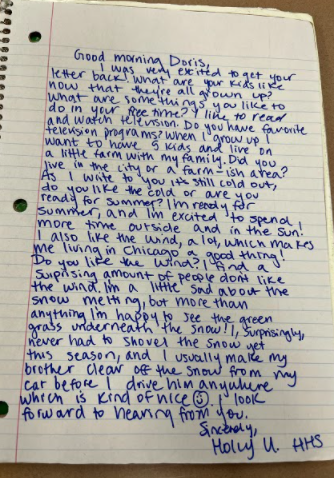 Good morning Doris,
I was very excited to get your
letter back! What are your kids like
now that they're all grown up?
What are some things you like to
do in your free time? I like to read
and watch television. Do you have favorite
television programs? When I grow up I
want to have 5 kids and live on
a little farm with my family. Did you
live in the city or a farm-ish area?
As I write to you it's still cold out,
do you like the cold or are you
ready for summer? I'm ready for
summer, and I'm excited to spend
more time outside and in the sun!
I also like the wind, a lot, which makes
me living in Chicago a good thing!
Do you like the wind? I find a
suprising amount of people dont like
the wind. I'm a little sad about the
snow melting, but more than
anything I'm happy to see the green
grass underneath the snow! I, surprisingly,
never had to shovel the snow yet
this season, and I usually make my
brother clear off the snow from my
car before I drive him anywhere
which is kind of nice ☺. I look
forward to hearing from you.
Sincerely,
Holly U. HHS